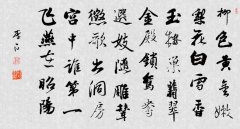 柳色黃金嫩
梨花白雪香
玉樓巢翡翠
金殿鎖鴛鴦
選妓隨雕輦
徵歌出洞房
宮中誰第一
飛燕在昭陽